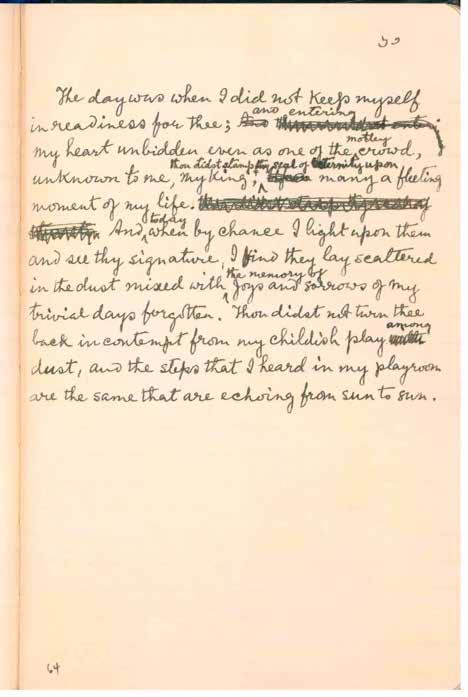 30
The day was when I did not keep myself
and entering
in readiness for thee; And
motley
my heart unbidden even as one of the crowd,
thou didst stamp the seal of eternity upon,
unknown to me, my king, many a fleeting
moment of my life. thou didst stamp the seal of
today
And, when by chance I light upon them
and see thy signature, I find they lay scattered
the memory of
in the dust mixed with Joys and sorrows of my
trivial days forgotten. Thou didst not turn thee
among
back in contempt from my childish play with
dust, and the steps that I heard in my playroom
are the same that are echoing from sun to sun.
64